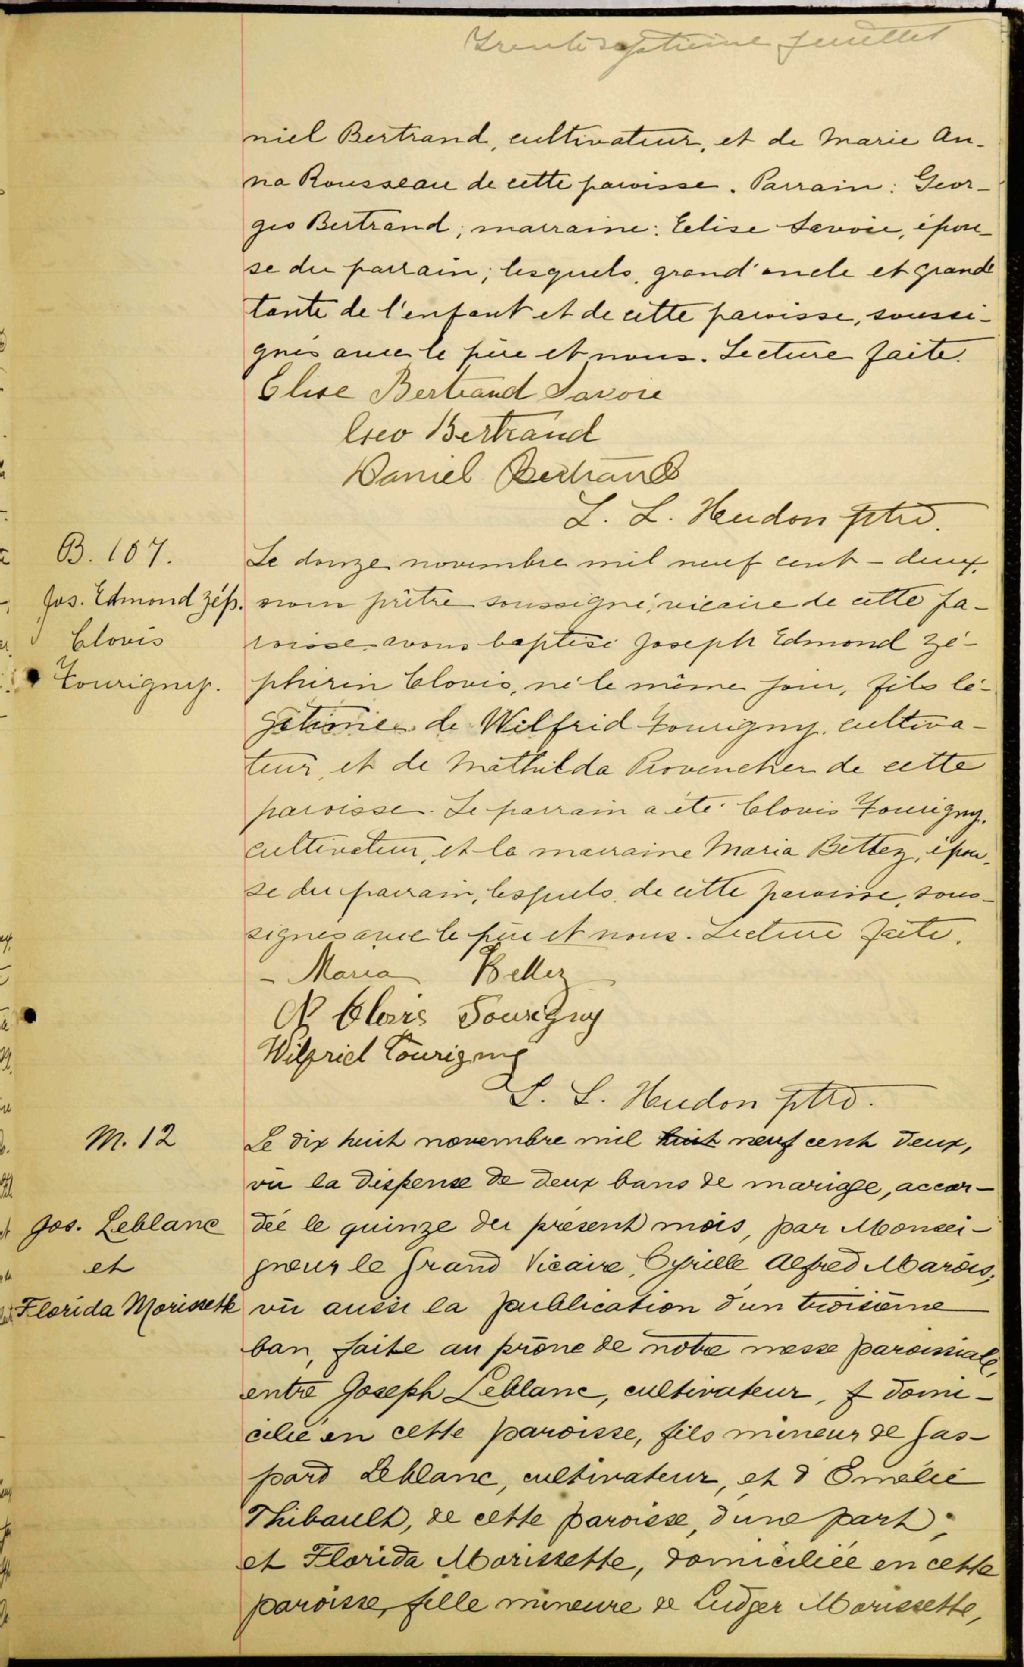 Trente septième feuillet
niel Bertrand, cultivateur, et de Marie An-
na Rousseau de cette paroisse. Parrain: Geor-
ges Bertrand; marraine: Eelise Savoie, épou-
se du parrain; lesquels, grand'oncle et grande
tante de l'enfant et de cette paroisse, soussi-
gnés avec le père et nous. Lecture faite.
Elise Bertrand Savoie
Geo Bertrand
Daniel Bertrand
L. L. Hudon ptre.
B. 107.
Jos. Edmond Zép.
Clovis
Tourigny.
Le douze novembre mil neuf cent-deux,
nous prêtre soussigné, vicaire de cette pa-
roisse avons baptisé Joseph Edmond Zé-
phirin Clovis, né le même jour, fils lé-
gitime de Wilfrid Tourigny, cultiva-
teur, et de Mathilda Provencher de cette
paroisse. Le parrain a été Clovis Tourigny,
cultivateur, et la marraine Maria Bettez, épou-
se du parrain, lesquels, de cette paroisse, sous-
signés avec le père et nous. Lecture faite.
Maria Bettez
Clovis Tourigny
Wilfrid Tourigny
L. L. Hudon ptre.
M. 12
Jos. Leblanc
et
Florida Morissette
Le dix huit novembre mil huit neuf cent deux,
vu la dispense de deux bans de mariage, accor-
dée le quinze du présent mois, par Monsei-
gneur le Grand Vicaire, Cyrille Alfred Marois,
vu aussi la publication d'un troisième
ban, faite au prône de notre messe paroissiale,
entre Joseph Leblanc, cultivateur, domi-
cilié en cette paroisse, fils mineur de Gas-
pard Leblanc, cultivateur, et d'Emélie
Thibault, de cette paroisse, d'une part;
et Florida Morissette, domiciliée en cette
paroisse, fille mineure de Ludger Morissette,